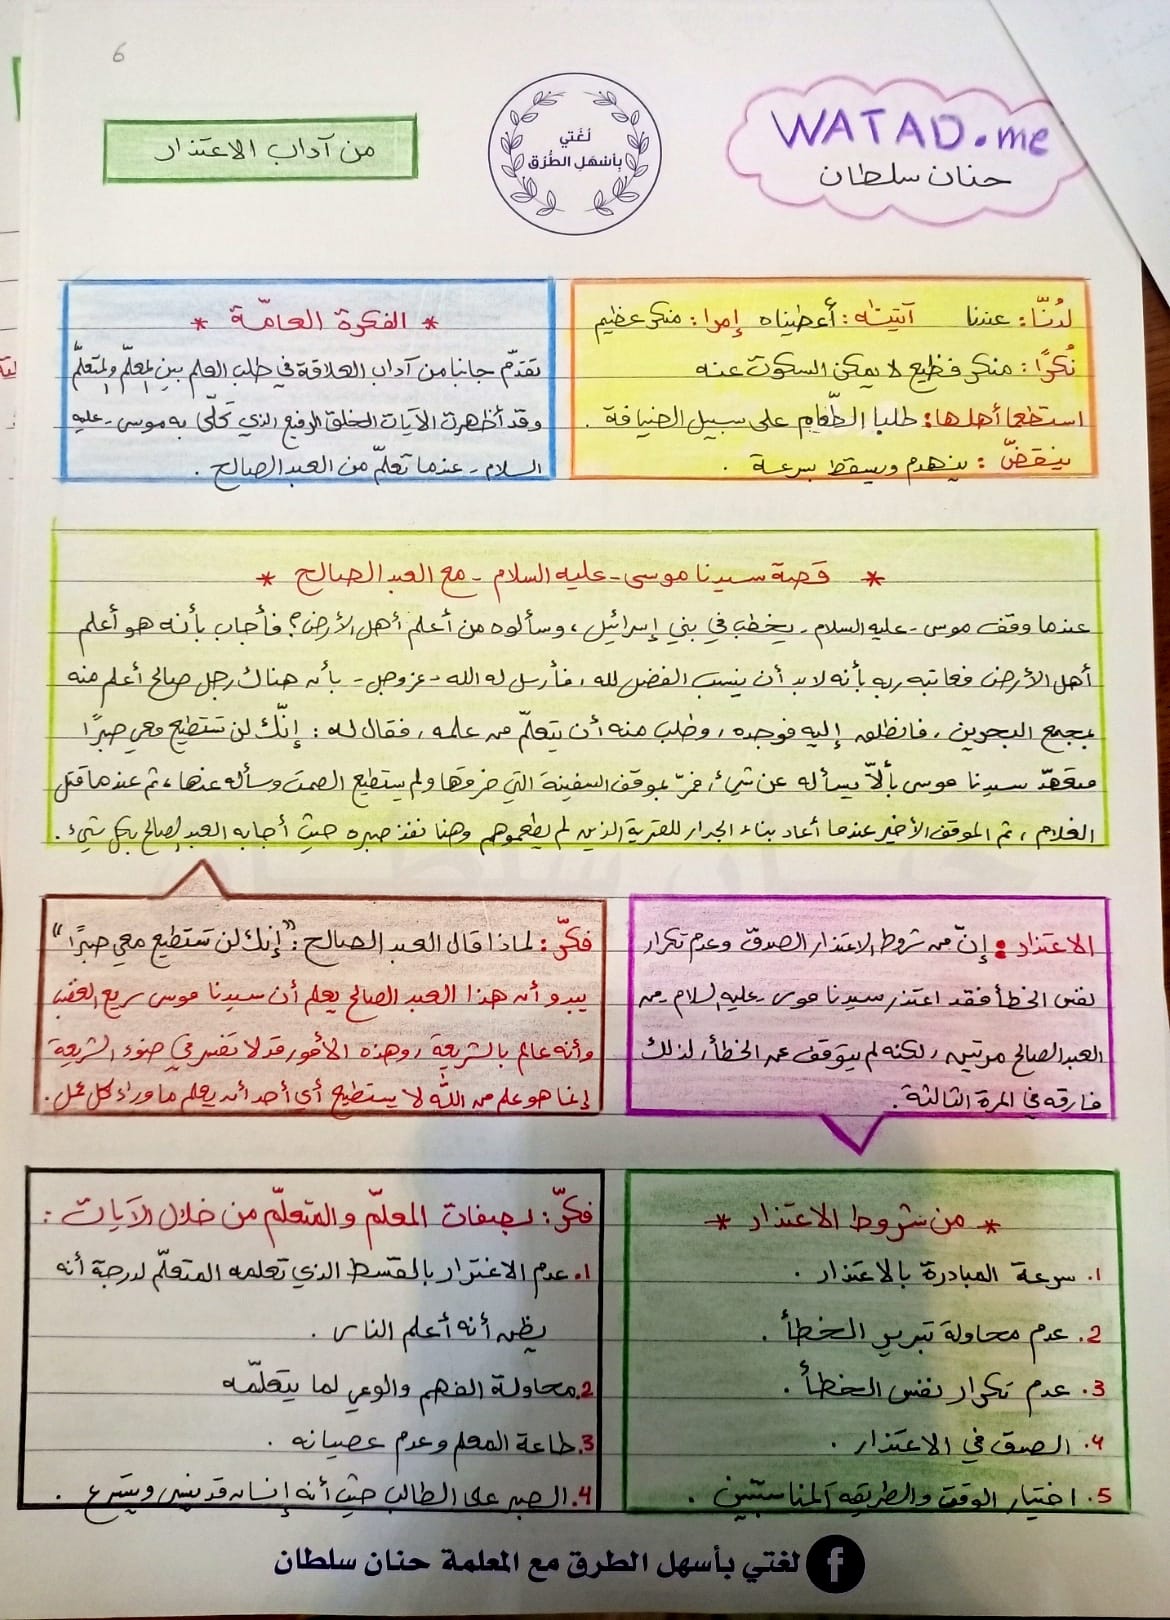 6
WATAD.me
حنان سلطان
لُغَتي
بِأسْهَلِ الطُّرُق
من آداب الاعتذار
لدُنّا: عندنا آتيناه: أعطيناه إمرا: منكر عظيم
نُكرًا: منكر فظيع لا يمكن السكوت عنه
استطعما أهلها: طلبا الطّعام على سبيل الضيافة.
ينقضّ: ينهدم ويسقط بسرعة.
* الفكرة العامّة *
تقدّم جانبا من آداب العلاقة في طلب العلم بين المعلّم والمتعلّم
وقد أظهرت الآيات الخلق الرفيع الذي تحلّى به موسى - عليه
السلام - عندما تعلّم من العبد الصالح.
* قصة سيدنا موسى - عليه السلام - مع العبد الصالح *
عندما وقف موسى - عليه السلام - يخطب في بني إسرائيل، وسألوه من أعلم أهل الأرض؟ فأجاب بأنه هو أعلم
أهل الأرض فعاتبه ربه بأنه لابد أن ينسب الفضل لله، فأرسل له الله - عزوجل - بأن هناك رجل صالح أعلم منه
بمجمع البحرين، فانطلق إليه فوجده، وطلب منه أن يتعلّم من علمه، فقال له: إنّك لن تستطيع معي صبرًا
فتعهّد سيدنا موسى بألّا يسأله عن شيء، فمرّ بموقف السفينة التي خرقها ولم يستطيع الصمت وسأله عنها، ثم عندما قتل
الغلام، ثم الموقف الأخير عندما أعاد بناء الجدار للقرية الذين لم يطعموهم وهنا نفذ صبره حيث أجابه العبد الصالح بكل شيء.
الاعتذار: إنّ من شروط الاعتذار الصدق وعدم تكرار
نفس الخطأ فقد اعتذر سيدنا موسى - عليه السلام - من
العبد الصالح مرتين، لكنه لم يتوقف عن الخطأ، لذلك
فارقه في المرة الثالثة.
فكّر: لماذا قال العبد الصالح: "إنك لن تستطيع معي صبرًا"
يبدو أن هذا العبد الصالح يعلم أن سيدنا موسى سريع الغضب
وأنه عالم بالشريعة، وهذه الأمور قد لا تفسر في ضوء الشريعة
إنما هو علم من اللّٰه لا يستطيع أي أحد أن يعلم ما وراء كل عمل.
* من شروط الاعتذار *
1. سرعة المبادرة بالاعتذار.
2. عدم محاولة تبرير الخطأ.
3. عدم تكرار نفس الخطأ.
4. الصدق في الاعتذار.
5. اختيار الوقت والطريقة المناسبَتين.
فكّر: لصفات المعلّم والمتعلّم من خلال الآيات:
1. عدم الاغترار بالقسط الذي تعلمه المتعلّم لدرجة أنه
يظن أنه أعلم الناس.
2. محاولة الفهم والوعي لما يتعلّمه
3. طاعة المعلم وعدم عصيانه.
4. الصبر على الطالب حيث أنه إنسان قد ينسى ويتسرع.
لغتي بأسهل الطرق مع المعلمة حنان سلطان